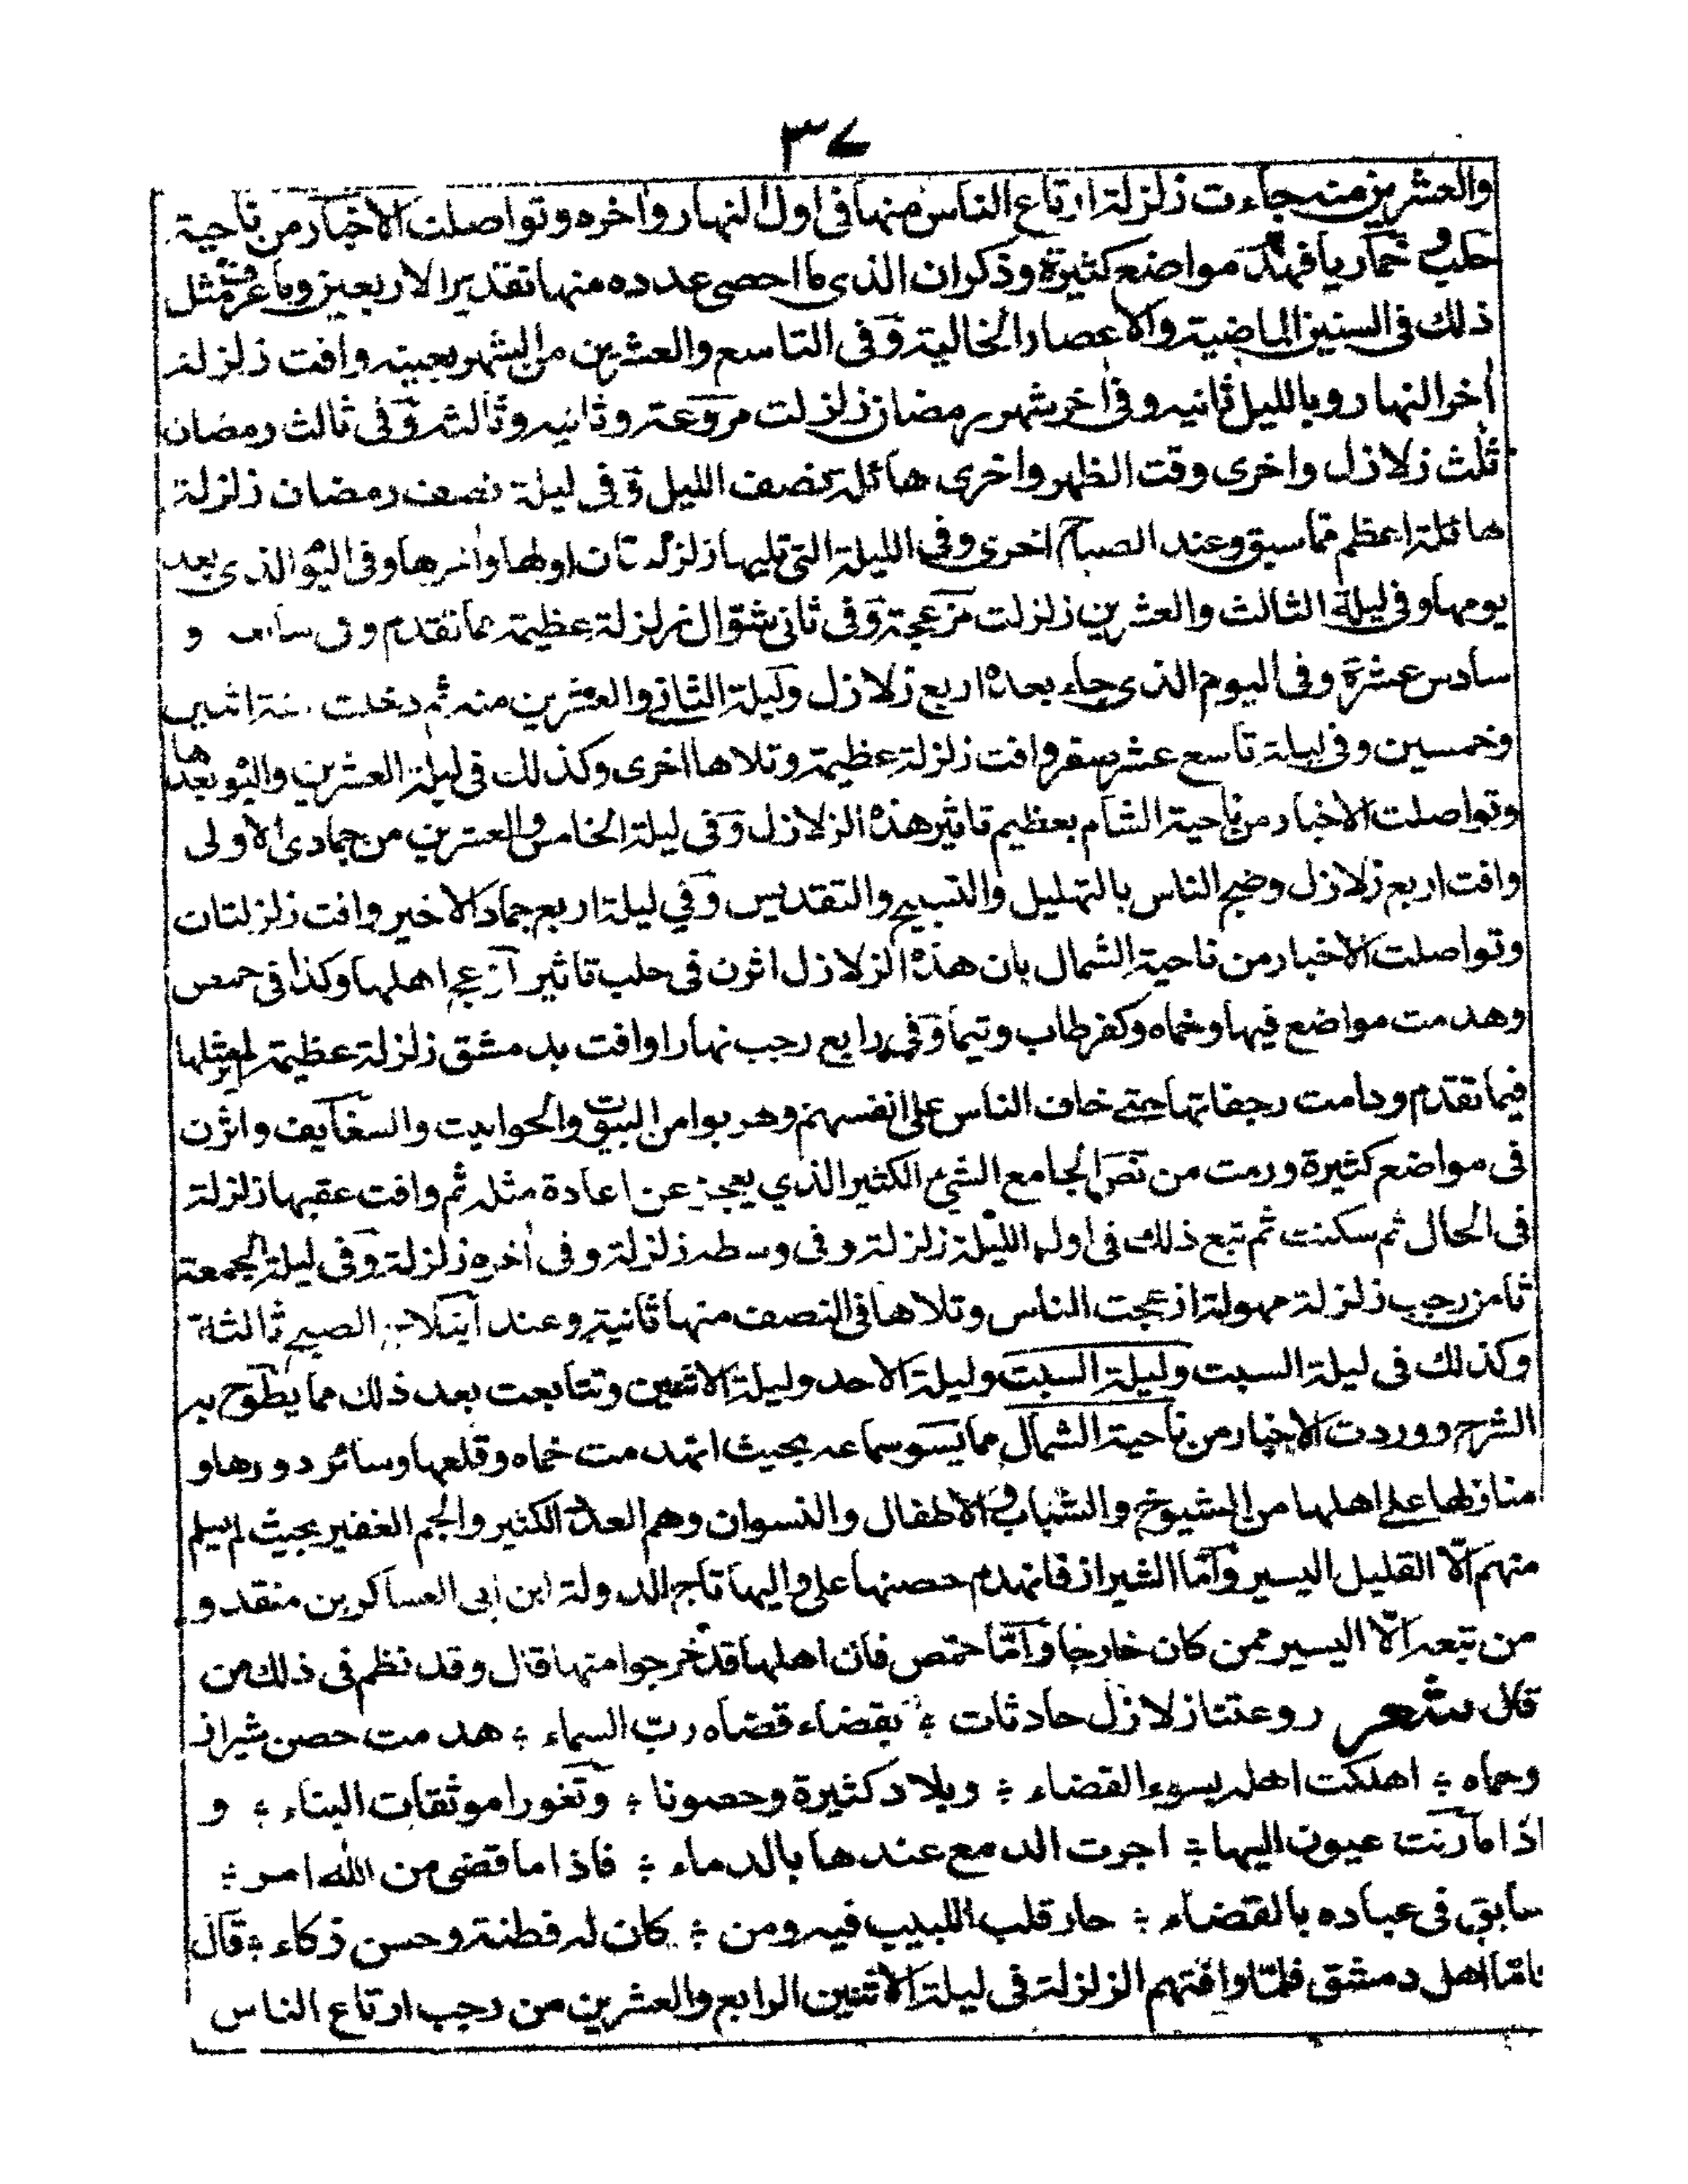 ٣٧
والعشرين منه جاءت زلزلة ارتاع الناس منها فى اول النهار واخره وتواصلت الاخبار من ناحية
حلب و حماه ريا فهد مواضع كثيرة وذكر ان الذى احصى عدده منها تقدير الاربعين وما عرف مثل
ذلك فى السنين الماضية والاعصار الخالية وفى التاسع والعشرين من الشهر بعينه وافت زلزلة
أخر النهار وبالليل ثانيه وفى أخر شهر رمضان زلزلت مروعة وثانيه وثالثه وفى ثالث رمضان
ثلث زلازل واخرى وقت الظهر واخرى هائلة نصف الليل وفى ليلة نصف رمضان زلزلة
هائلة اعظم مما سبق وعند الصباح اخرى وفى الليلة التى تليها زلزلتان اولها واخرها وفى اليوم الذى بعد
يومها وفى ليلة الثالث والعشرين زلزلت مزعجة وفى ثانى شوال زلزلة عظيمة مما تقدم وفى سابعه و
سادس عشرة وفى اليوم الذى جاء بعده اربع زلازل وليلة الثانى والعشرين منه ثم دخلت سنة اثنين
وخمسين وفى ليلة تاسع عشر صفر وافت زلزلة عظيمة وتلاها اخرى وكذلك فى ليلة العشرين واليوم بعدها
وتواصلت الاخبار من ناحية الشام بعظيم تاثير هذه الزلازل وفى ليلة الخامس والعشرين من جمادى الاولى
وافت اربع زلازل وضج الناس بالتهليل والتسبيح والتقديس وفي ليلة اربع جماد الاخير وافت زلزلتان
وتواصلت الاخبار من ناحية الشمال بان هذه الزلازل اثرن فى حلب تاثير آزعج اهلها وكذا فى حمص
وهدمت مواضع فيها وحماه وكفرطاب وتيما وفى رابع رجب نهارا وافت بدمشق زلزلة عظيمة لم ير مثلها
فيما تقدم ودامت رجفاتها حتى خاف الناس على انفسهم وهربوا من البيوت والحوانيت والسقايف واثرن
فى مواضع كثيرة ورمت من نص الجامع الشئ الكثير الذي يعجز عن اعادة مثله ثم وافت عقبها زلزلة
فى الحال ثم سكنت ثم تبع ذلك فى اول الليلة زلزلة وفى وسطه زلزلة وفى أخره زلزلة وفى ليلة الجمعة
ثامن رجب زلزلة مهولة ازعجت الناس وتلاها فى النصف منها ثانية وعند الصبح ثالثة
وكذلك فى ليلة السبت وليلة السبت وليلة الاحد وليلة الاثنين وتتابعت بعد ذلك مما يطوح به
الشرح ووردت الاخبار من ناحية الشمال مما يسو سماعه بحيث انهدمت حماه وقلعها وسائر دورها و
منازلها على اهلها من الشيوخ والشباب والاطفال والنسوان وهم العدد الكثير والجم الغفير بحيث لم يسلم
منهم الّا القليل اليسير وأمّا الشيراز فانهدم حصنها على واليها تاج الدولة ابن ابى العساكر بن منقد و
من تبعه الّا اليسير ممن كان خارجا وأمّا حمص فان اهلها قد خرجوا منها قال وقد نظم فى ذلك من
قال شعر روعتنا زلازل حادثات ؞ بقضاء قضاه ربّ السماء ؞ هدمت حصن شيراز
وحماه ؞ اهلكت اهله بسوء القضاء ؞ وبلاد كثيرة وحصونا ؞ وثغورا موثقات البناء ؞ و
اذا ما رنت عيون اليها ؞ اجرت الدمع عندها بالدماء ؞ فاذا ما قضى من الله امر ؞
سابق فى عباده بالقضاء ؞ حار قلب اللبيب فيه ومن ؞ كان له فطنة وحسن ذكاء ؞ قال
فامّا اهل دمشق فلمّا وافتهم الزلزلة فى ليلة الاثنين الرابع والعشرين من رجب ارتاع الناس